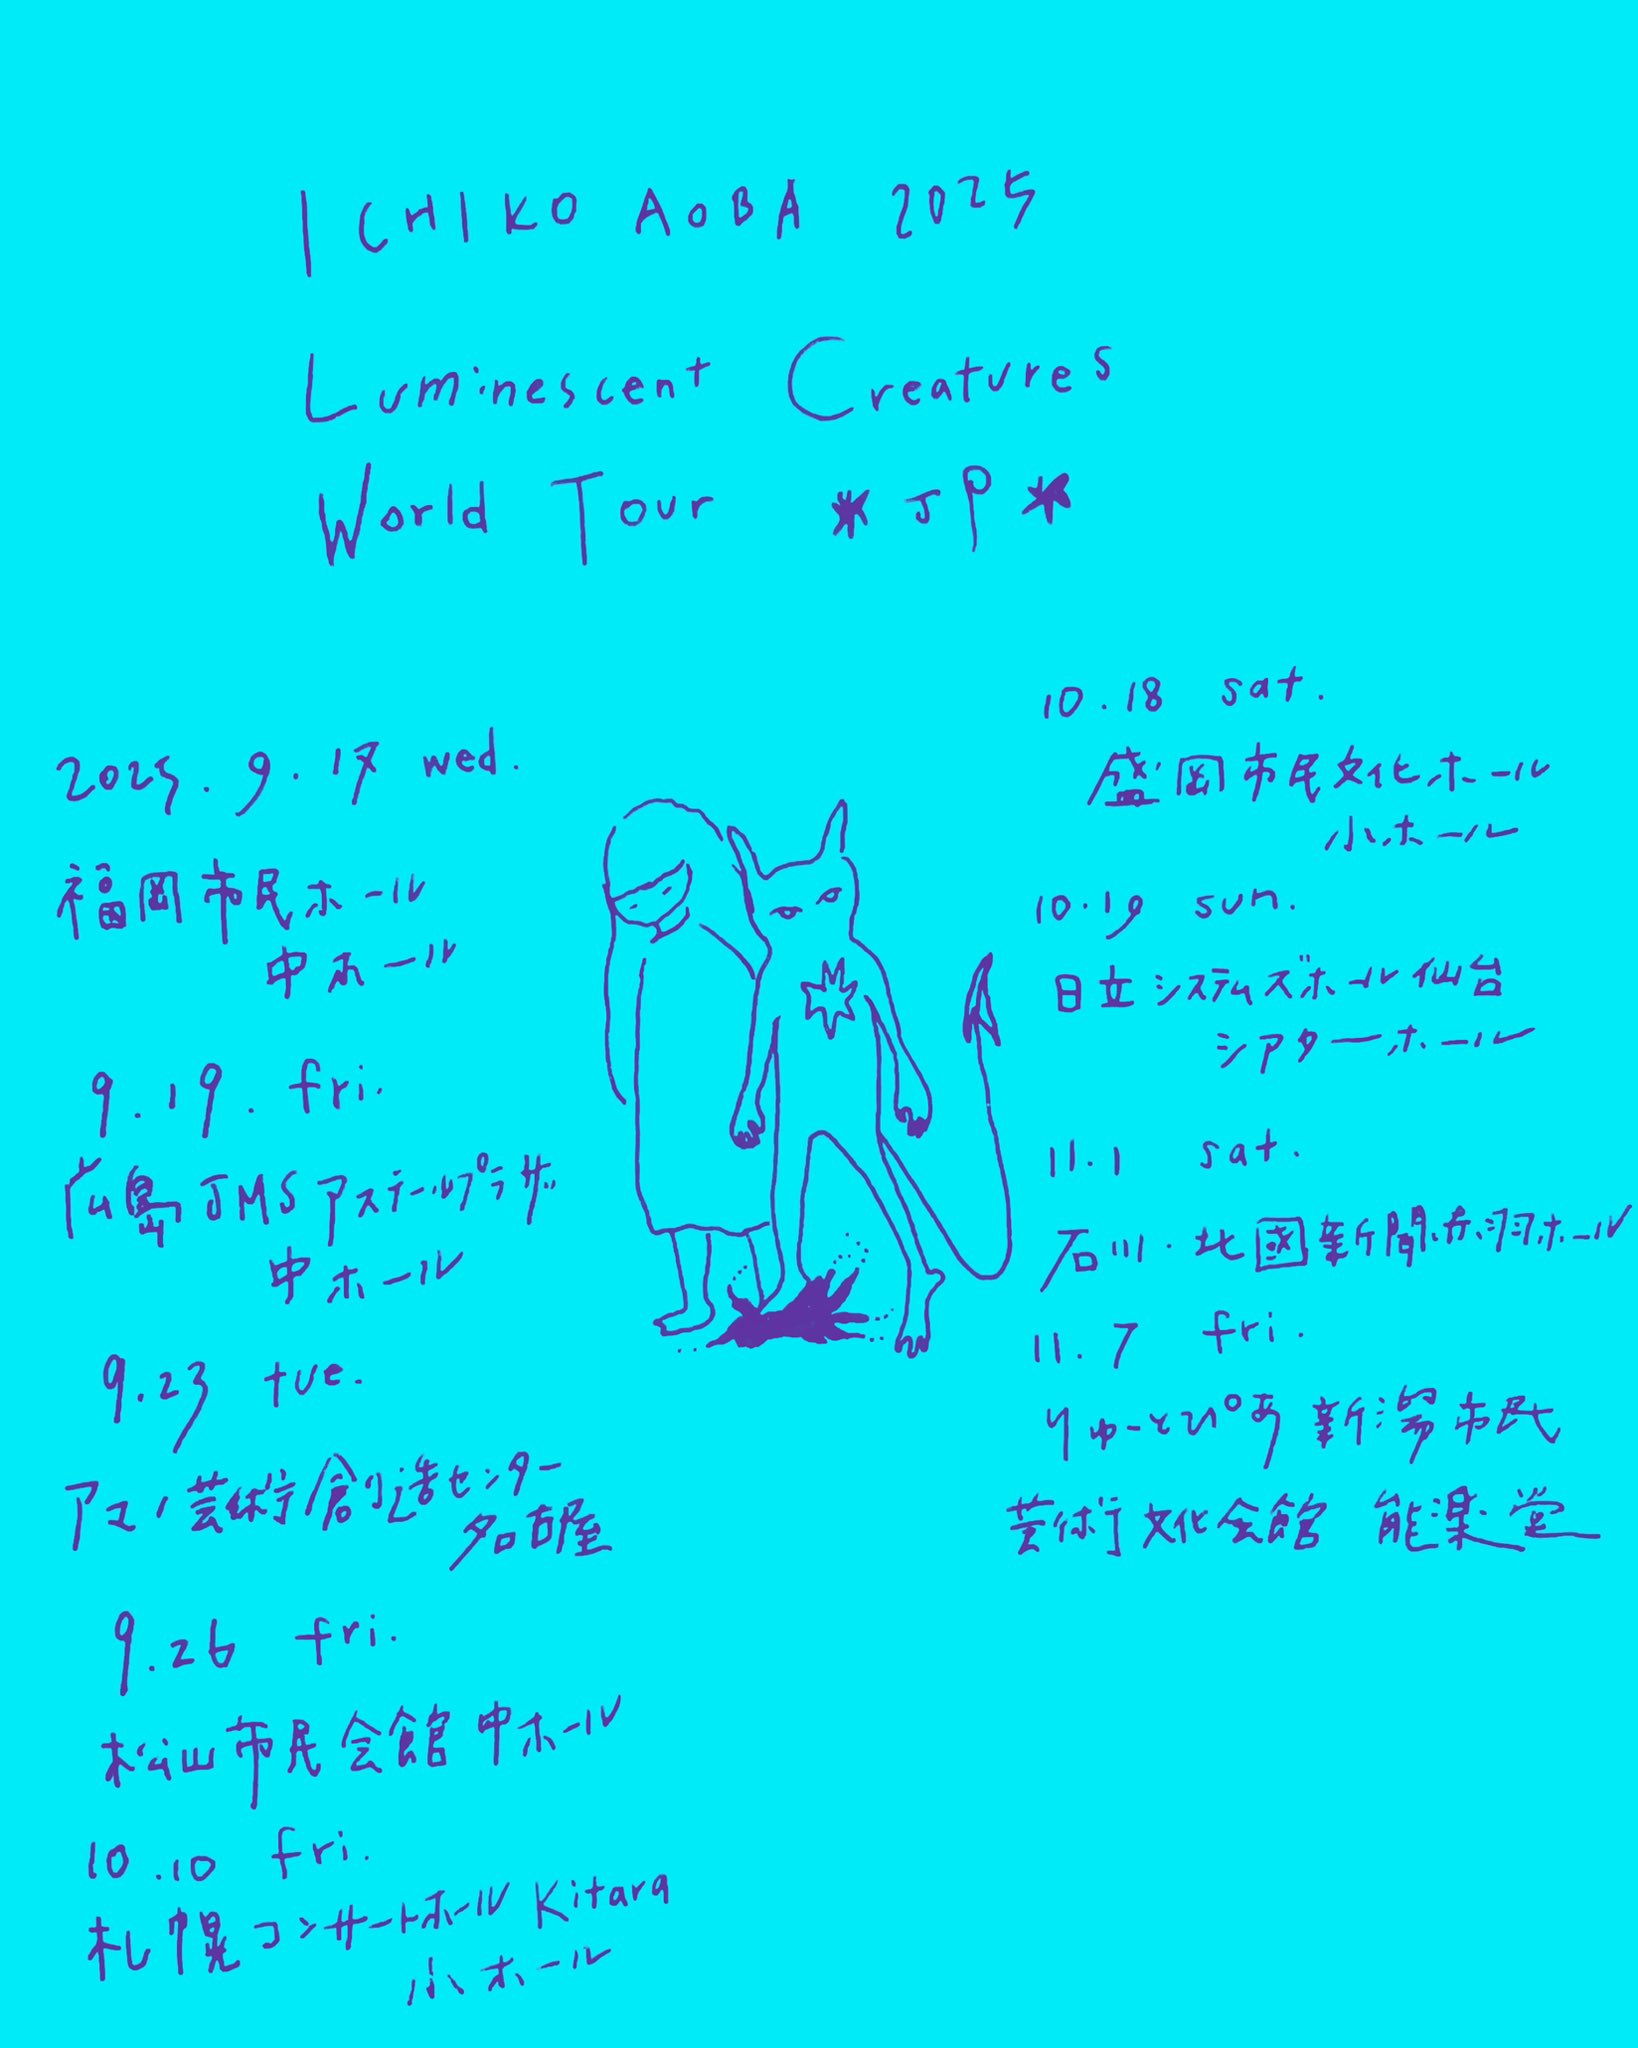 ICHIKO AOBA 2025
Luminescent Creatures
World Tour *JP*
2025. 9. 17 wed.
福岡市民ホール
中ホール
9. 19. fri.
広島JMSアステールプラザ
中ホール
9.23 tue.
アマノ芸術創造センター
名古屋
9.26 fri.
松山市民会館中ホール
10.10 fri.
札幌コンサートホールKitara
小ホール
10.18 sat.
盛岡市民文化ホール
小ホール
10.19 sun.
日立システムズホール仙台
シアターホール
11.1 sat.
石川・北國新聞赤羽ホール
11.7 fri.
りゅーとぴあ 新潟市民
芸術文化会館 能楽堂